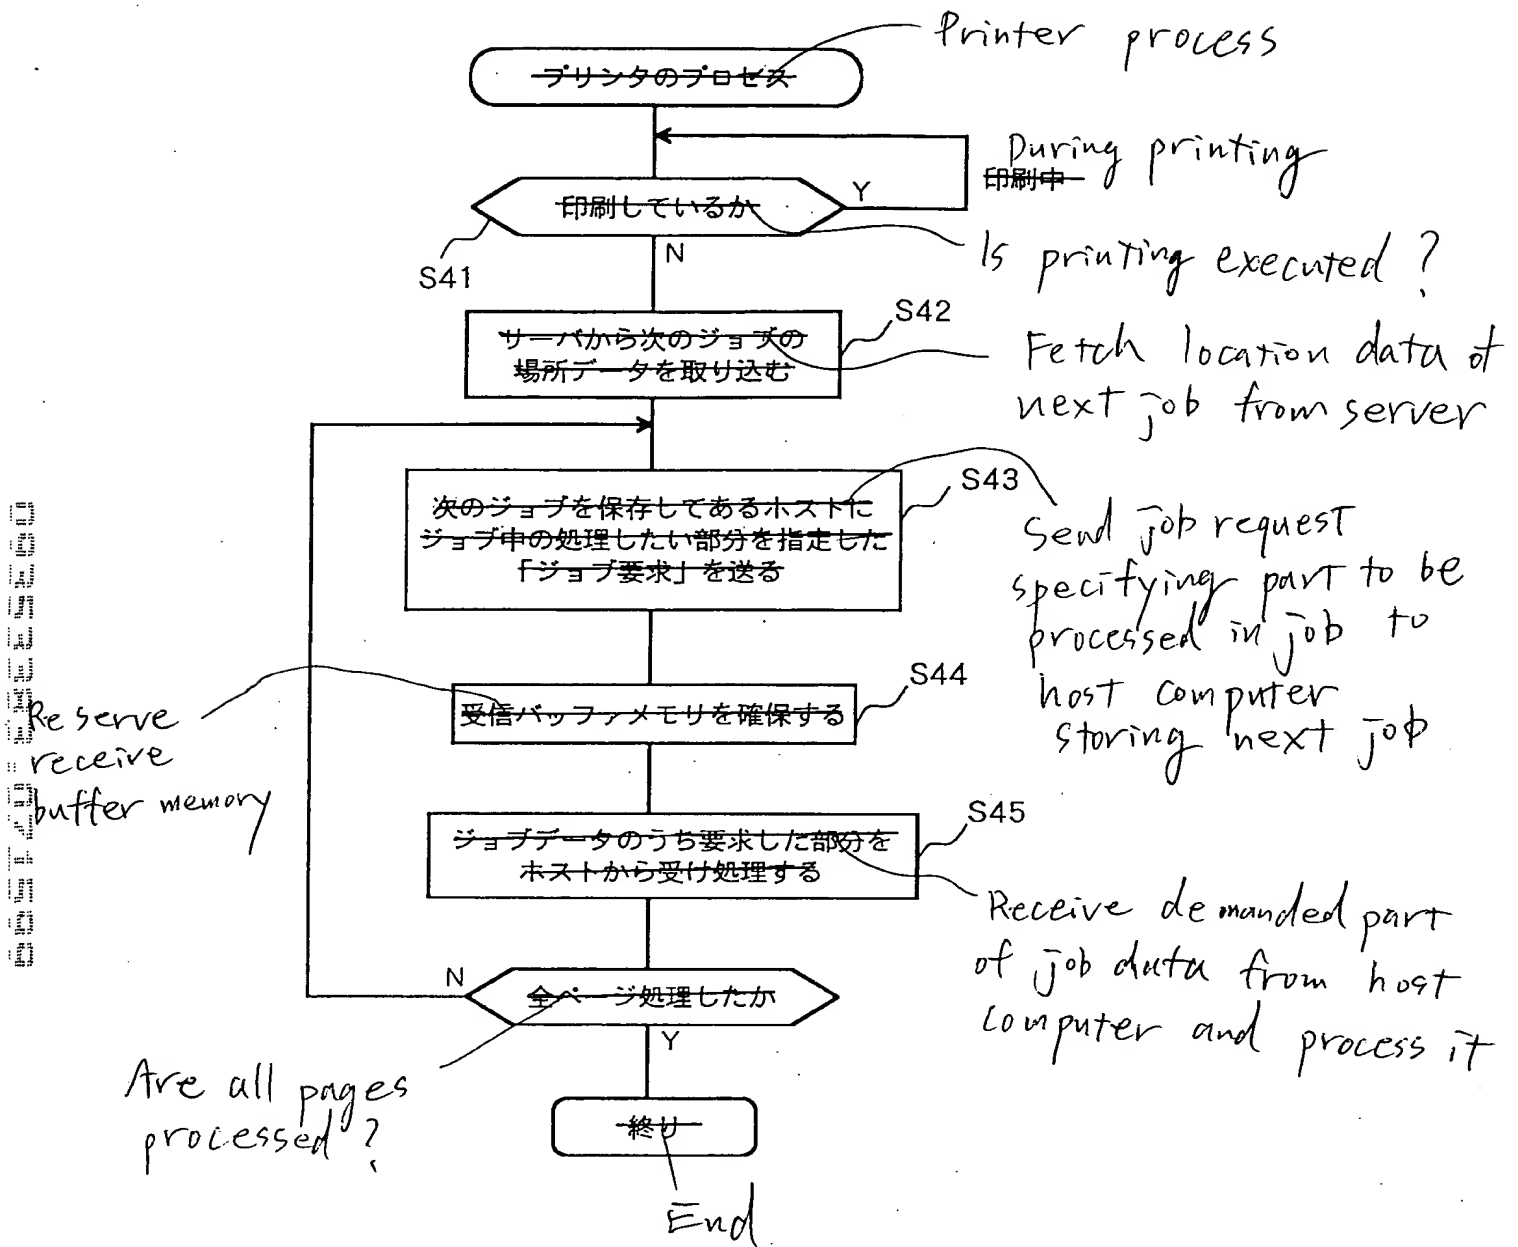 Printer process
プリンタのプロセス
During printing
印刷中
印刷しているか
Y
S41
N
Is printing executed?
S42
サーバから次のジョブの
場所データを取り込む
Fetch location data of
next job from server
S43
次のジョブを保存してあるホストに
ジョブ中の処理したい部分を指定した
「ジョブ要求」を送る
Send job request
specifying part to be
processed in job to
host computer
storing next job
S44
受信バッファメモリを確保する
Reserve
receive
buffer memory
S45
ジョブデータのうち要求した部分を
ホストから受け処理する
Receive demanded part
of job data from host
computer and process it
N
全ページ処理したか
Y
Are all pages
processed?
終り
End